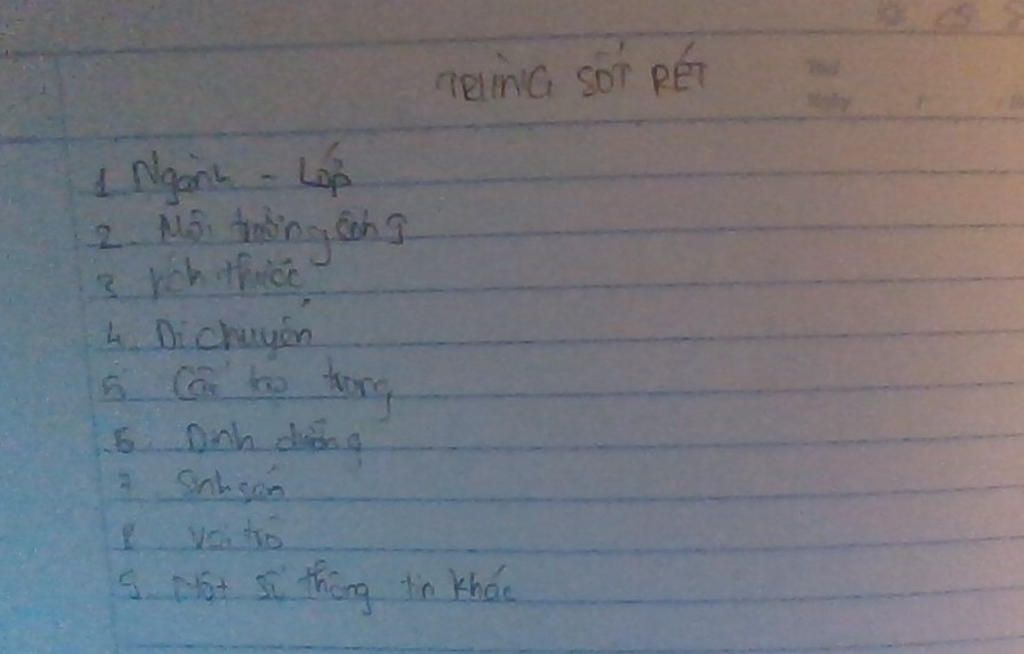 TRÙNG SỐT RÉT
1 Ngành - Lớp
2. Môi trường sống
3 Kích thước
4. Di chuyển
5 Cấu tạo trong
6. Dinh dưỡng
7 Sinh sản
8 Vai trò
9. Một số thông tin khác